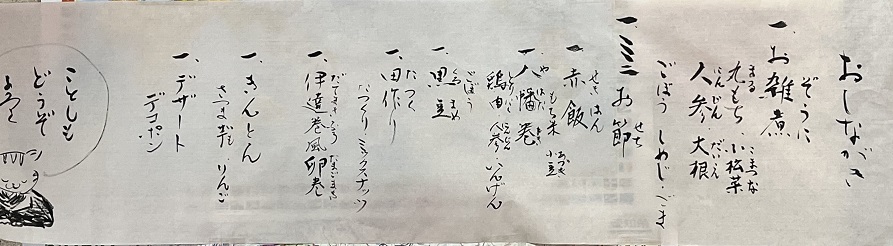 おしながき
一、お雑煮
ぞうに
丸もち 小松菜
まる こまつな
人参 大根
にんじん だいこん
ごぼう しめじ・ごま
一、ミニお節
せち
一、赤飯
せきはん
もち米 小豆
あづき
一、八幡巻
やはたまき
鶏肉 人参 いんげん
とりにく にんじん
ごぼう
一、黒豆
くろまめ
一、田作り
たつくり
たつくり・ミックスナッツ
一、伊達巻風卵巻
だてまきふう たまごまき
一、きんとん
さつまいも りんご
一、デザート
デコポン
ことしも
どうぞ
よろしく